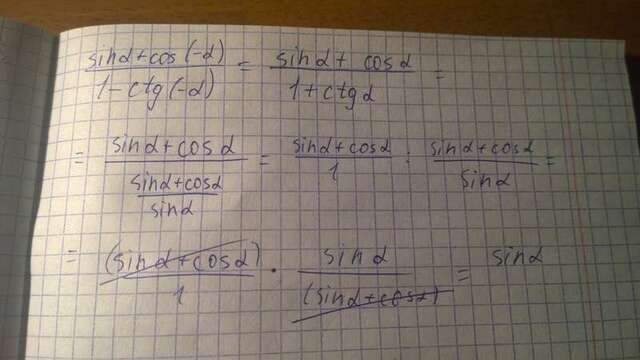 (sinα+cos(-α))/(1-ctg(-α)) = (sinα+ cosα)/(1+ctgα) =
= (sinα+cosα)/((sinα+cosα)/sinα) = (sinα+cosα)/1 : (sinα+cosα)/sinα =
= (sinα+cosα)/1 · sinα/(sinα+cosα) = sinα